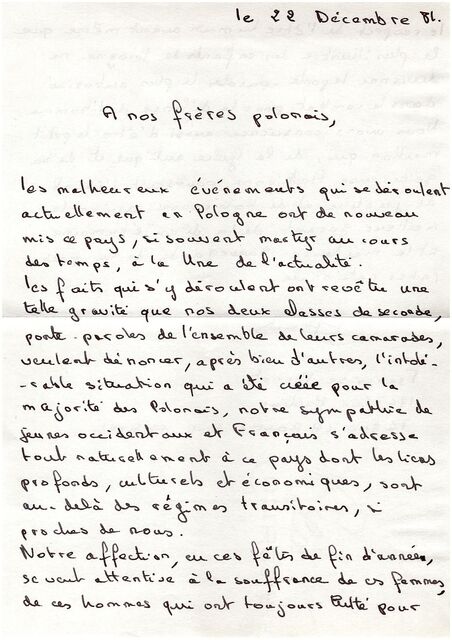 le 22 Décembre 81.
A nos frères polonais,
Les malheureux événements qui se déroulent
actuellement en Pologne ont de nouveau
mis ce pays, si souvent martyr au cours
des temps, à la Une de l'actualité.
Les faits qui s'y déroulent ont revêtu une
telle gravité que nos deux classes de seconde,
porte-paroles de l'ensemble de leurs camarades,
veulent dénoncer, après bien d'autres, l'intolé-
-rable situation qui a été créée pour la
majorité des Polonais, notre sympathie de
jeunes occidentaux et Français s'adresse
tout naturellement à ce pays dont les liens
profonds, culturels et économiques, sont
au-delà des régimes transitoires, si
proches de nous.
Notre affection, en ces fêtes de fin d'année,
se veut attentive à la souffrance de ces femmes,
de ces hommes qui ont toujours lutté pour